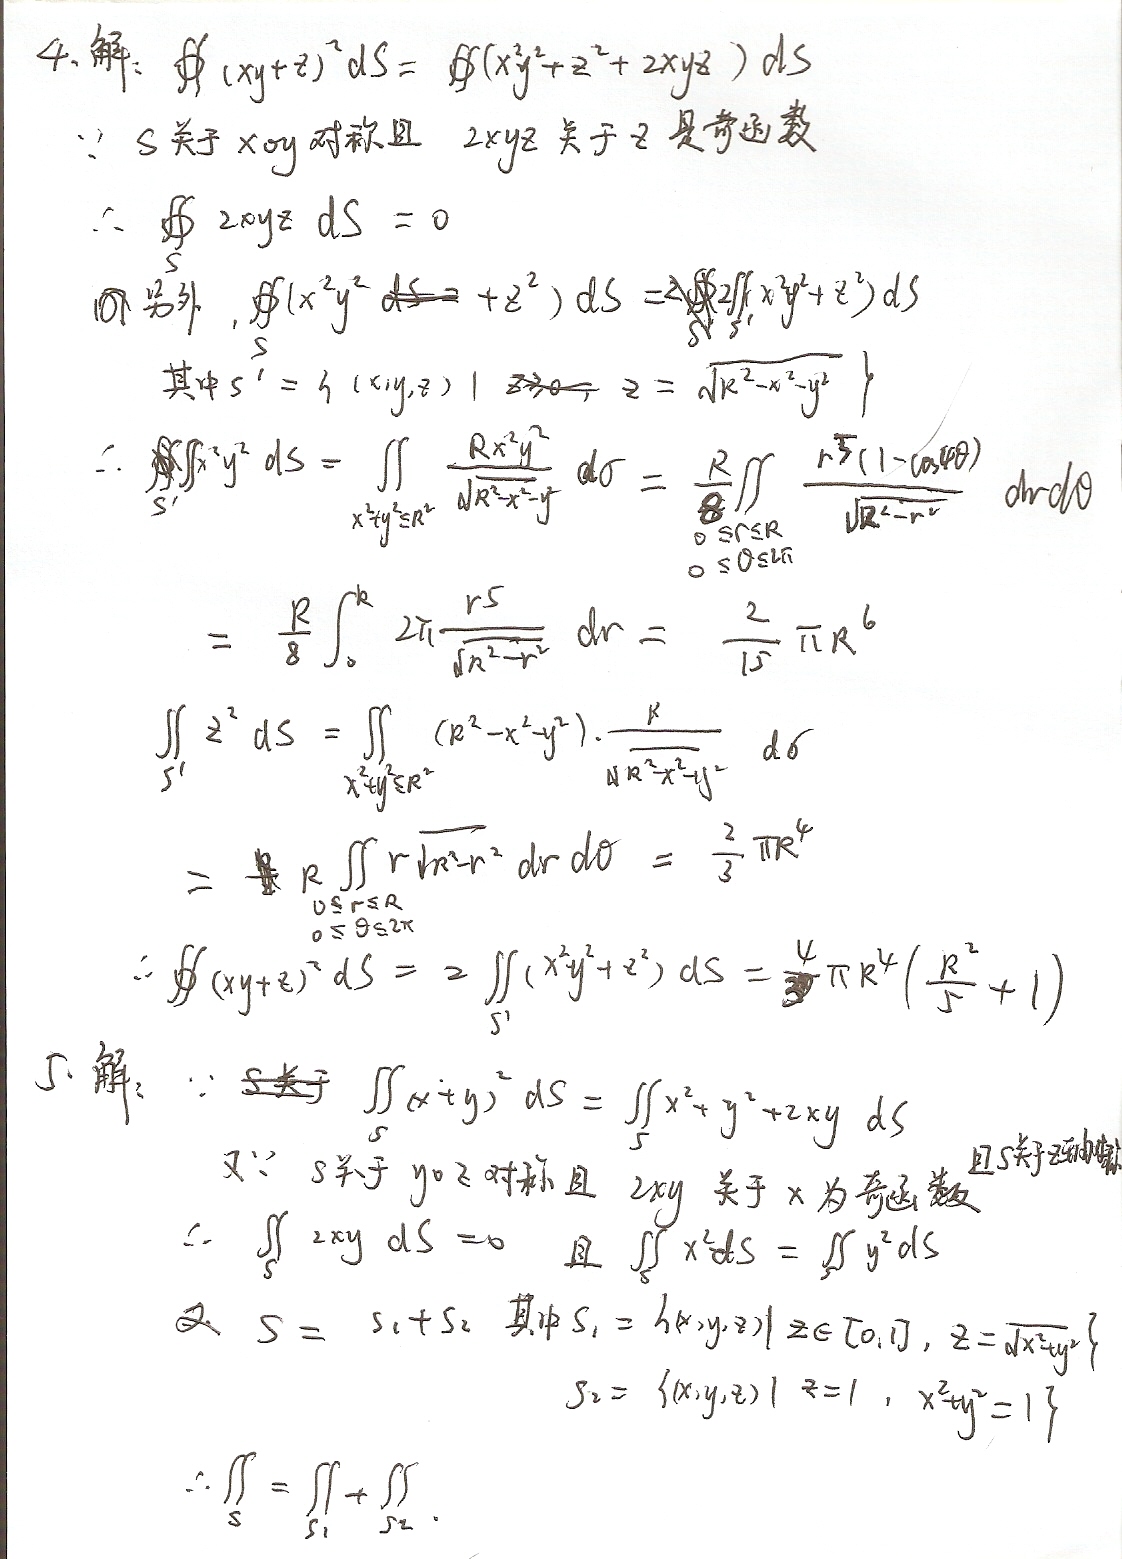 4. 解: ∯ (xy+z)² dS = ∯(x²y²+z²+2xyz) dS
∵ S关于xoy对称且 2xyz关于z是奇函数
∴ ∯_S 2xyz dS = 0
另外, ∯_S (x²y² + z²) dS = 2∬_S' (x²y²+z²) dS
其中S' = {(x,y,z) | z = √(R²-x²-y²)}
∴ ∬_S' x²y² dS = ∬_{x²+y²≤R²} Rx²y²/√(R²-x²-y²) dσ = R/8 ∬_{0≤r≤R, 0≤θ≤2π} r⁵(1-cos4θ)/√(R²-r²) drdθ
= R/8 ∫₀^R 2π r⁵/√(R²-r²) dr = 2/15 πR⁶
∬_S' z² dS = ∬_{x²+y²≤R²} (R²-x²-y²)·R/√(R²-x²-y²) dσ
= R ∬_{0≤r≤R, 0≤θ≤2π} r√(R²-r²) dr dθ = 2/3 πR⁴
∴ ∯ (xy+z)² dS = 2∬_S' (x²y²+z²) dS = 4/3 πR⁴(R²/5 + 1)
5. 解: ∵ ∬_S (x+y)² dS = ∬_S x²+y²+2xy dS
又∵ S关于yoz对称且 2xy关于x为奇函数 且S关于z轴对称
∴ ∬_S 2xy dS = 0 且 ∬_S x² dS = ∬_S y² dS
又 S = S₁+S₂ 其中S₁ = {(x,y,z) | z∈[0,1], z=√(x²+y²)}
S₂ = {(x,y,z) | z=1, x²+y²=1}
∴ ∬_S = ∬_S₁ + ∬_S₂.